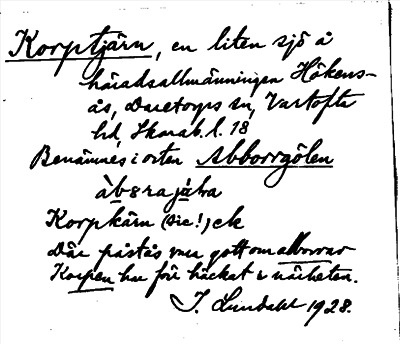 Korptjärn, en liten sjö å
häradsallmänningen Hökens-
ås, Daretorps sn, Vartofta
hd, Skarab. l. 18
Benämnes i orten Abborrgölen
Korpkärn (sic!) ek
Där påstås vara gott om abborrar
Korpen har förr häckat i närheten.
J. Lundahl 1928.